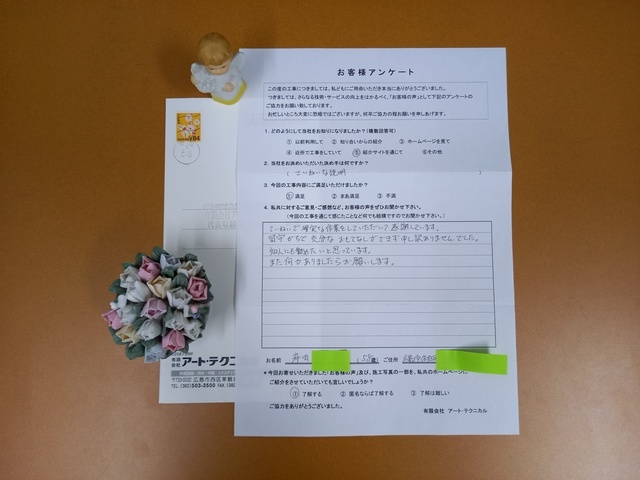 お客様アンケート
この度の工事につきましては、私どもにご用命いただき本当にありがとうございました。
つきましては、さらなる技術・サービスの向上をはかるべく、「お客様の声」として下記のアンケートの
ご協力をお願い致しております。
お忙しいところ大変に恐縮ではございますが、何卒ご協力の程お願いを申しあげます。
1. どのようにして当社をお知りになりましたか?(複数回答可)
① 以前利用して ② 知り合いからの紹介 ③ ホームページを見て
④ 近所で工事をしていて ⑤ 紹介サイトを通じて ⑥その他
2. 当社をお決めいただいた決め手は何ですか?
( ていねいな説明 )
3. 今回の工事内容にご満足いただけましたか?
① 満足 ② まあ満足 ③ 不満
4. 私共に対するご意見・ご感想など、お客様の声をぜひお聞かせ下さい。
(今回の工事を通じて感じたことなど何でも結構ですのでお聞かせ下さい。)
ていねいで確実な作業をしていただいて感謝しています。
留守がちで充分なおもてなしができず申し訳ありませんでした。
知人にも勧めたいと思っています。
また何かありましたらお願いします。
お名前 ( 歳) ご住所
*今回お寄せいただきました「お客様の声」及び、施工写真の一部を、私共のホームページに
ご紹介をさせていただいても宜しいでしょうか?
① 了解する ② 匿名ならば了解する ③ 了解は難しい
ご協力をありがとうございました。
有限会社 アート・テクニカル
84
有限会社 アート・テクニ
広島市西区
TEL (082)503-3500 FAX (082)